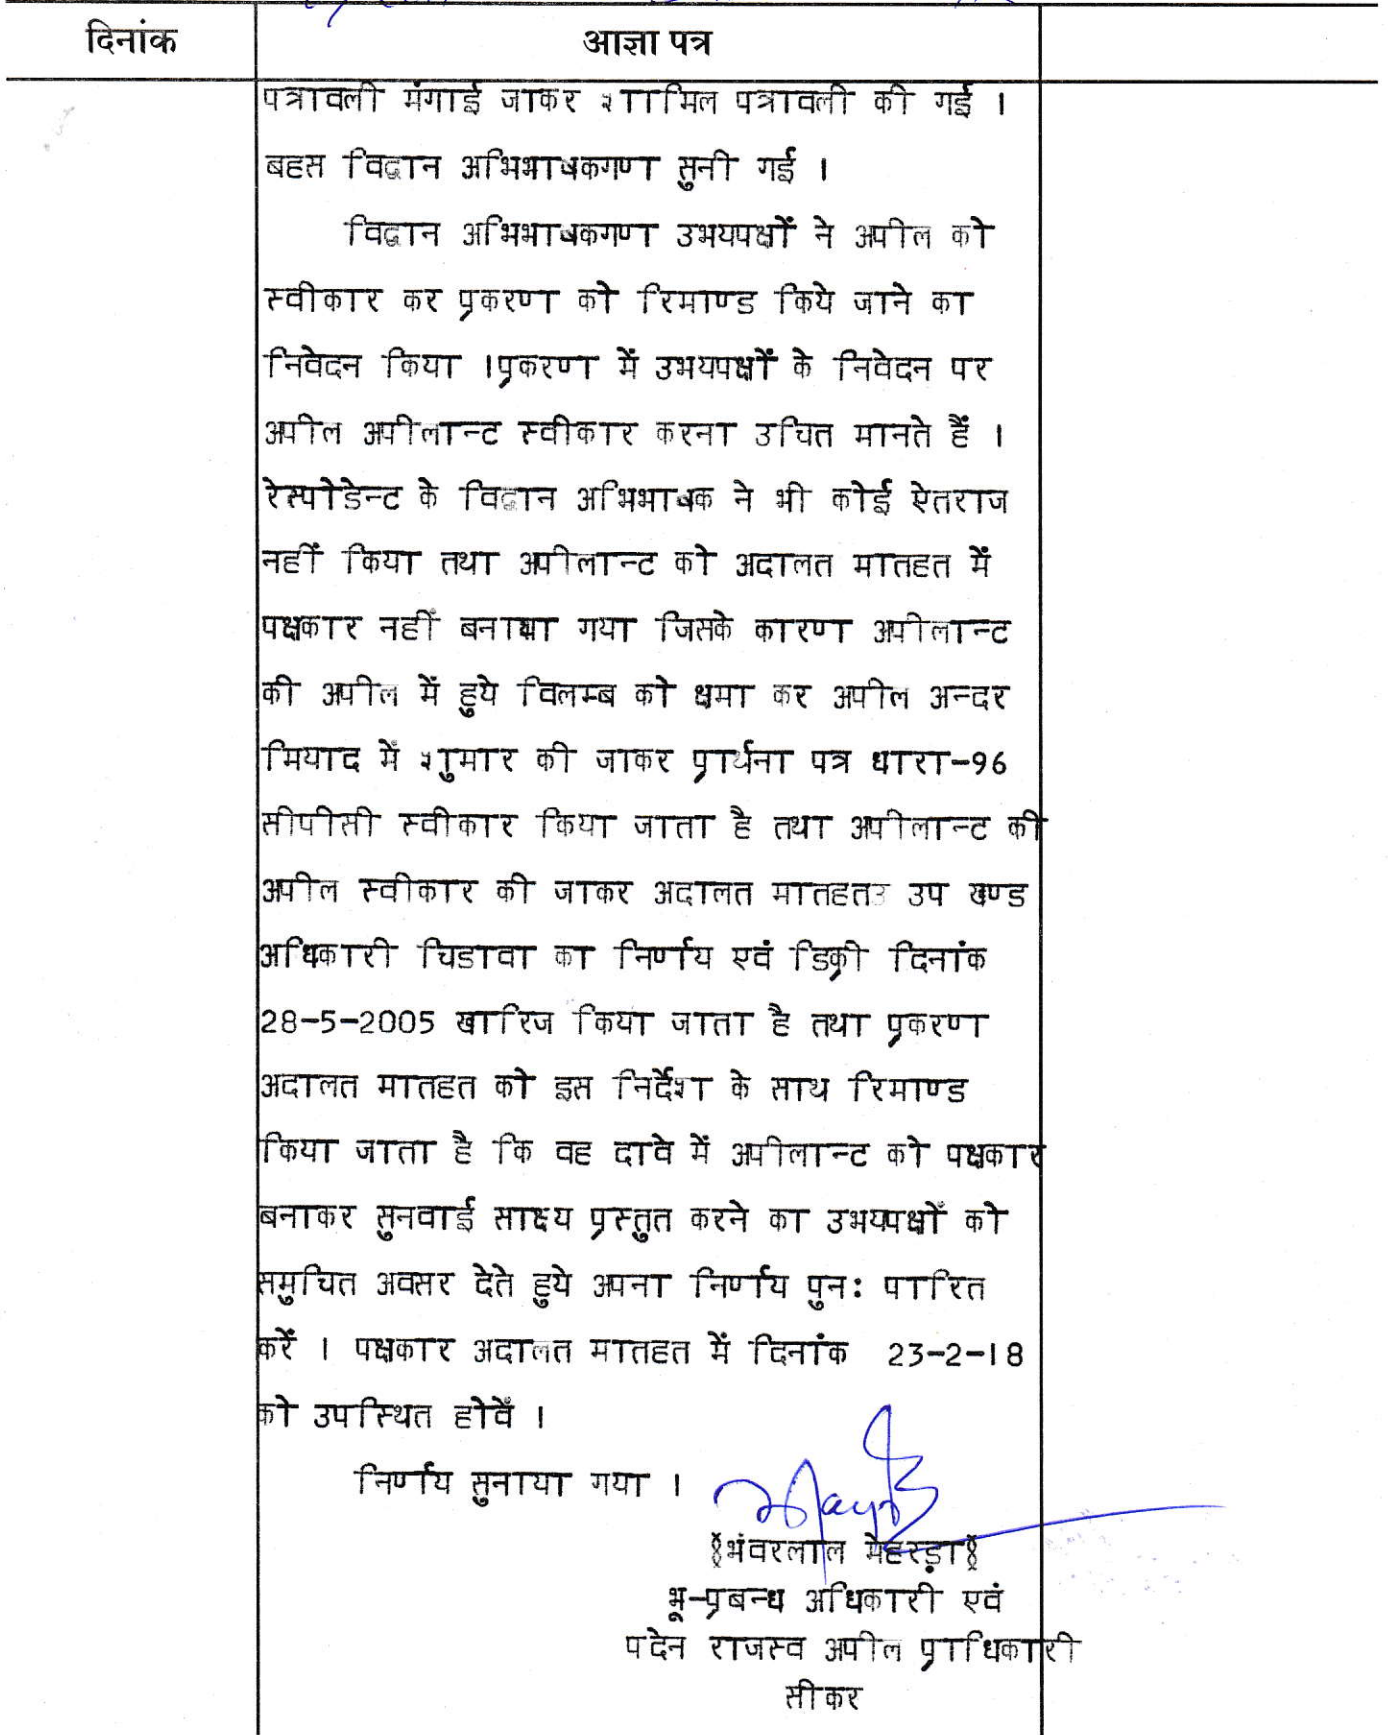 दिनांक आज्ञा पत्र
पत्रावली मंगाई जाकर शामिल पत्रावली की गई ।
बहस विद्वान अभिभाषकगण सुनी गई ।
विद्वान अभिभाषकगण उभयपक्षों ने अपील को
स्वीकार कर प्रकरण को रिमाण्ड किये जाने का
निवेदन किया ।प्रकरण में उभयपक्षों के निवेदन पर
अपील अपीलान्ट स्वीकार करना उचित मानते हैं ।
रेस्पोडेन्ट के विद्वान अभिभाषक ने भी कोई ऐतराज
नहीं किया तथा अपीलान्ट को अदालत मातहत में
पक्षकार नहीं बनाया गया जिसके कारण अपीलान्ट
की अपील में हुये विलम्ब को क्षमा कर अपील अन्दर
मियाद में शुमार की जाकर प्रार्थना पत्र धारा-96
सीपीसी स्वीकार किया जाता है तथा अपीलान्ट की
अपील स्वीकार की जाकर अदालत मातहत उप खण्ड
अधिकारी चिडावा का निर्णय एवं डिक्री दिनांक
28-5-2005 खारिज किया जाता है तथा प्रकरण
अदालत मातहत को इस निर्देश के साथ रिमाण्ड
किया जाता है कि वह दावे में अपीलान्ट को पक्षकार
बनाकर सुनवाई साक्ष्य प्रस्तुत करने का उभयपक्षों को
समुचित अवसर देते हुये अपना निर्णय पुन: पारित
करें । पक्षकार अदालत मातहत में दिनांक 23-2-18
को उपस्थित होवें ।
निर्णय सुनाया गया ।
§भंवरलाल मेहरड़ा§
भू-प्रबन्ध अधिकारी एवं
पदेन राजस्व अपील प्राधिकारी
सीकर